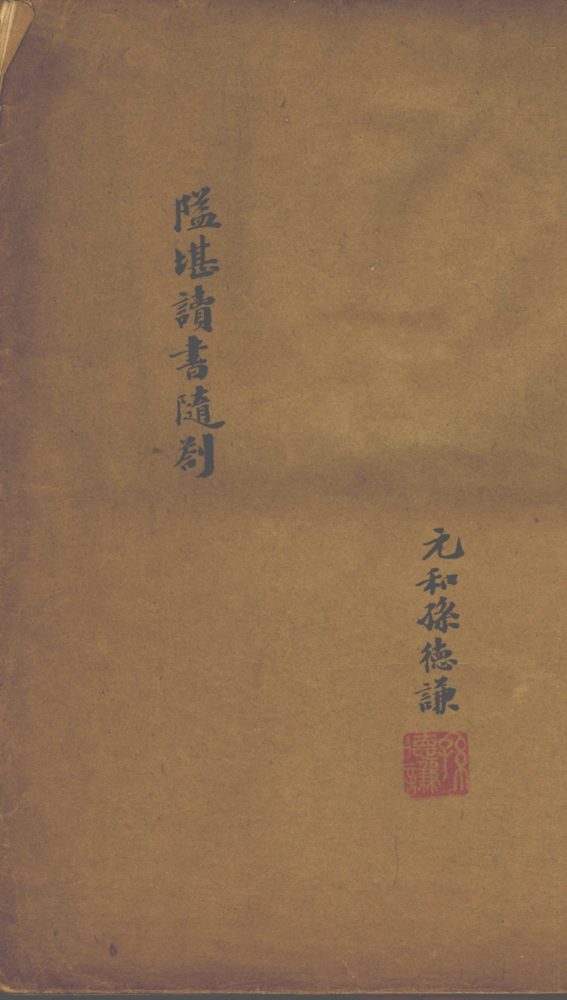 隘堪讀書隨劄
元和孫德謙
孫德謙